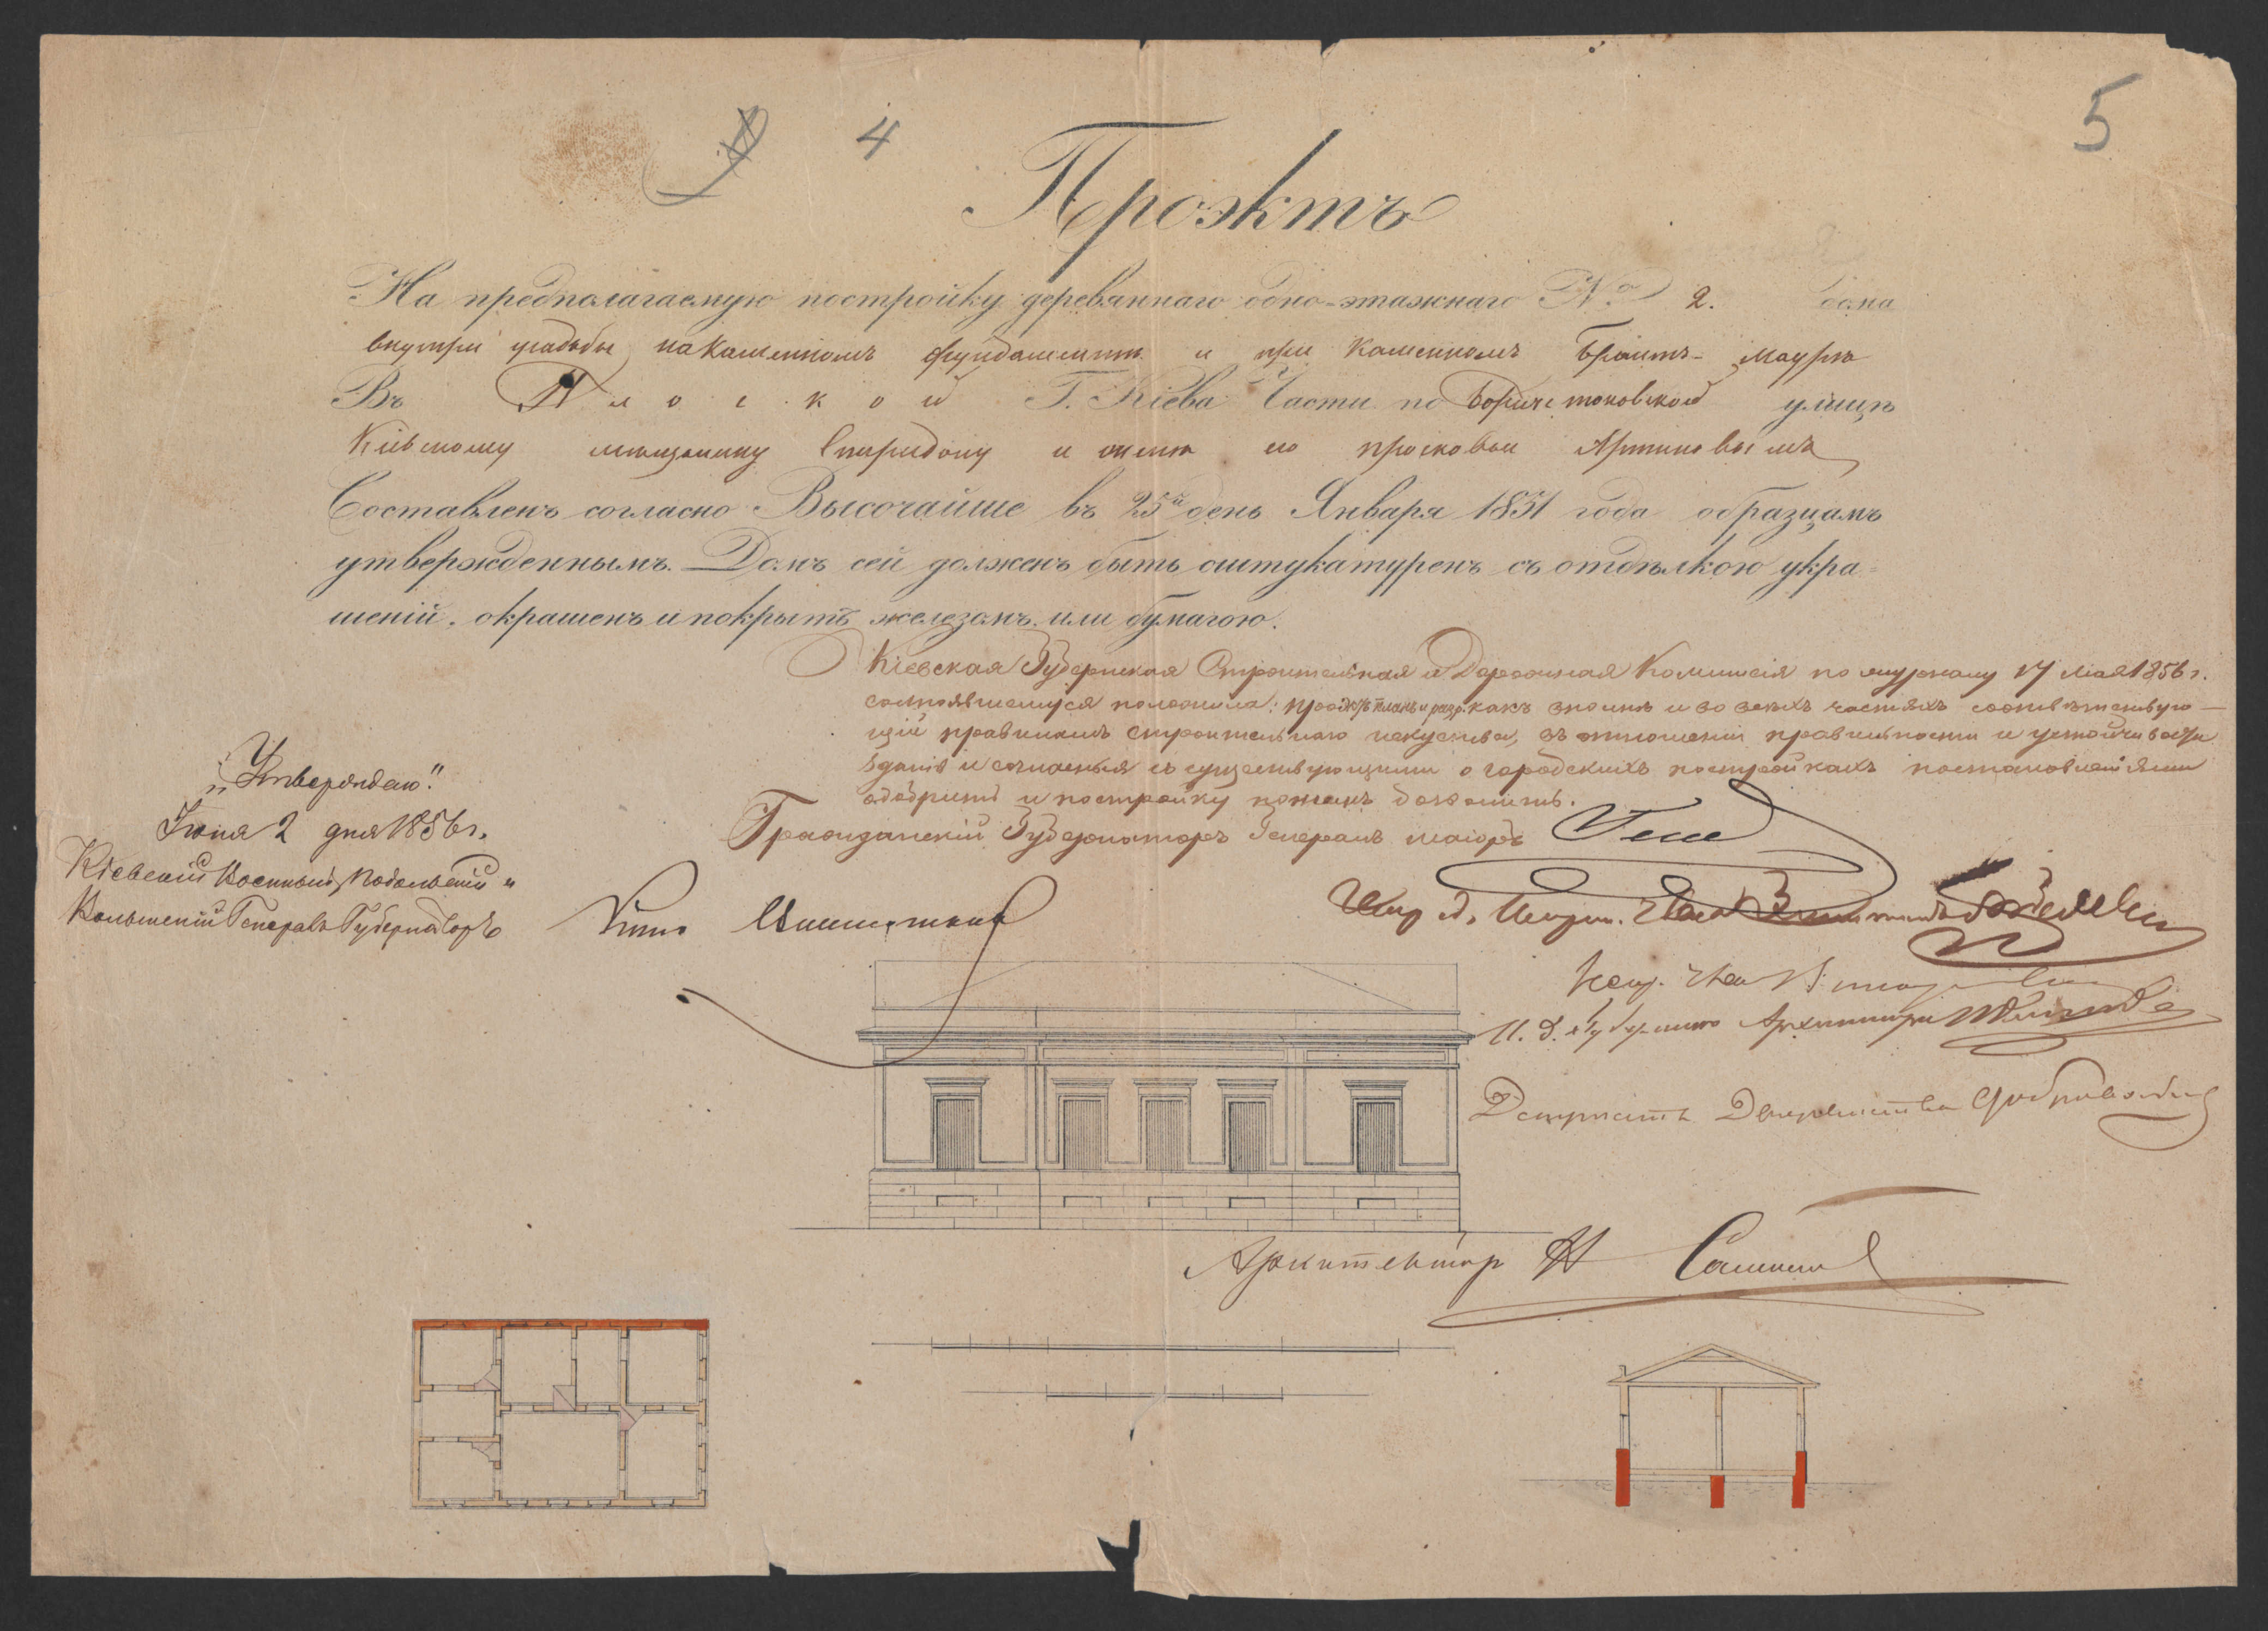 4
5
Проэктъ
На предполагаемую постройку деревяннаго одно-этажнаго № 2. дома
внутри усадьбы на каменномъ фундаментѣ и при каменномъ брантъ-маурѣ
Въ Плоской Г. Кіева Части по Боричетоковской улицѣ
Кіевскому мѣщанину Спиридону и женѣ его Просковьи
Составленъ согласно Высочайше въ 25й день Января 1851 года образцамъ
утвержденнымъ. Домъ сей долженъ быть оштукатуренъ съ отдѣлкою укра=
шеній, окрашенъ и покрытъ железомъ или бумагою.
Кіевская Губернская Строительная и Дорожная Комиссія по журналу 17 Мая 1856 г.
состоявшемуся положила: проэктъ какъ вполнѣ и во всехъ частяхъ соответствую-
щій правиламъ строительнаго искуства, въ отношеніи правильности и устойчивости
зданія и согласный съ существующими о городскихъ постройкахъ постановленіями
одобрить и постройку дозволить.
Гражданскій Губернаторъ Генералъ Маіоръ Гессе
„Утверждаю"
Іюня 2 дня 1856 г.
Кіевскій Военный, Подольскій и
Волынскій Генералъ Губернаторъ Князь Васильчиковъ
И. д. Губернскаго Архитектора
Депутатъ Дворянства
Архитекторъ